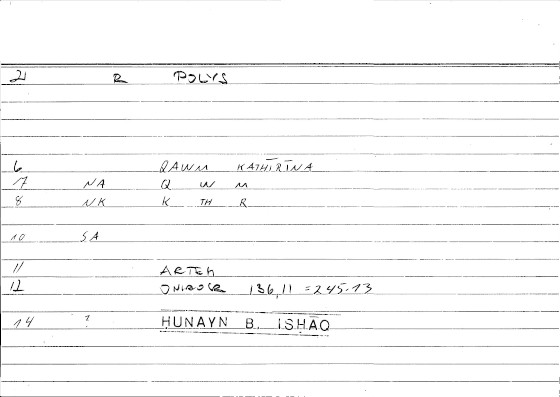 21 R POLYS
6 QAWM KATHĪRĪNA
7 NA Q W M
8 NK K TH R
10 SA
11 ARTEM
12 ONIROCR 136,11 = 245.13
14 ? HUNAYN B. ISHĀQ